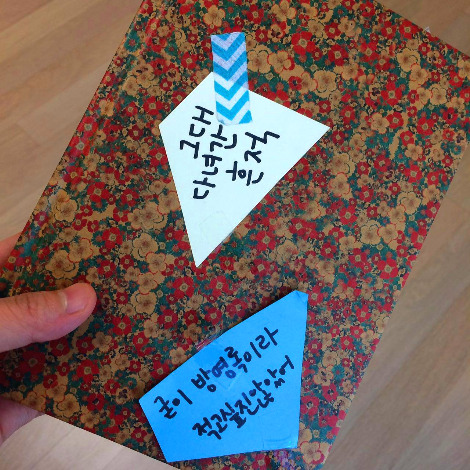 그대
다녀간
흔적
굳이 방명록이라
적고싶진않았어